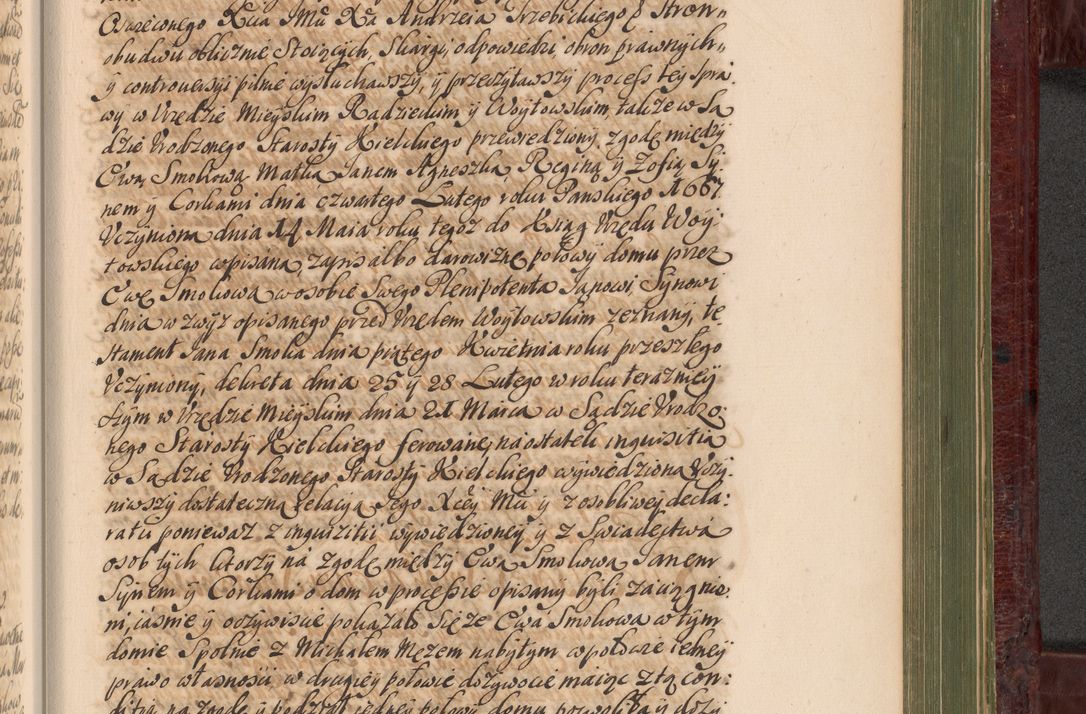 Oswieconego Xcia JMci Xa Andrzeia Trzebickiego & Stron
obudwu oblicznie Stoiących, Skargi, odpowiedzi, obron prawnych,
y controuersyi pilnie wysłuchawszy, y przeczytawszy process tey spra
wy w Vrzędzie Mieyskim Radzieckim y Woytowskim, także w Są
dzie Vrodzonego Starosty Kieleckiego przewiedziony, zgodę między
Ewą Smokową Matką Janem Agneszką Reginą y Zofią Sy:
nem y Corkami dnia czwartego Lutego roku Panskiego 1667
Vczyniona, dnia 14 Maia roku tegoż do Ksiąg Vrzędu Woy
towskiego wpisana, zapis albo darowiznę połowy domu przez
Ewę Smokową w osobie Swego Plenipotenta Janowi Synowi
dnia w zwyż opisanego przed Vrzędem Woytowskim zeznany, te
stament Jana Smoka dnia piątego Kwietnia roku przeszłego
Vczyniony, dekreta dnia 25 y 28 Lutego w roku teraznieÿ
szym w Vrzędzie Mieyskim dnia 21 Marca w Sądzie Vrodzo
nego Starosty Kieleckiego ferowane, na ostatek inquisitią
w Sądzie Vrodzonego Starosty Kieleckiego wywiedziona Vczy
niwszy dostateczną relacyą Jego Xcey Mci y z osobliwey decla:
ratii ponieważ z inquizitii wywiedzioney y z Swiadectwa
osob tych ktorzy na zgodę między Ewą Smokową Janem
Synem y Corkami o dom w processie opisany byli zaciągnie
ni, iasnie y oczywiscie pokazało się że Ewa Smokowa w tym
domie Spolnie z Michałem Mężem nabytym w połowie iedney
prawo własnosci w drugiey połowie dożywocie maiąc z tą con:
ditią na zgodę y podział iedney połowy domu pozwoliła y doży